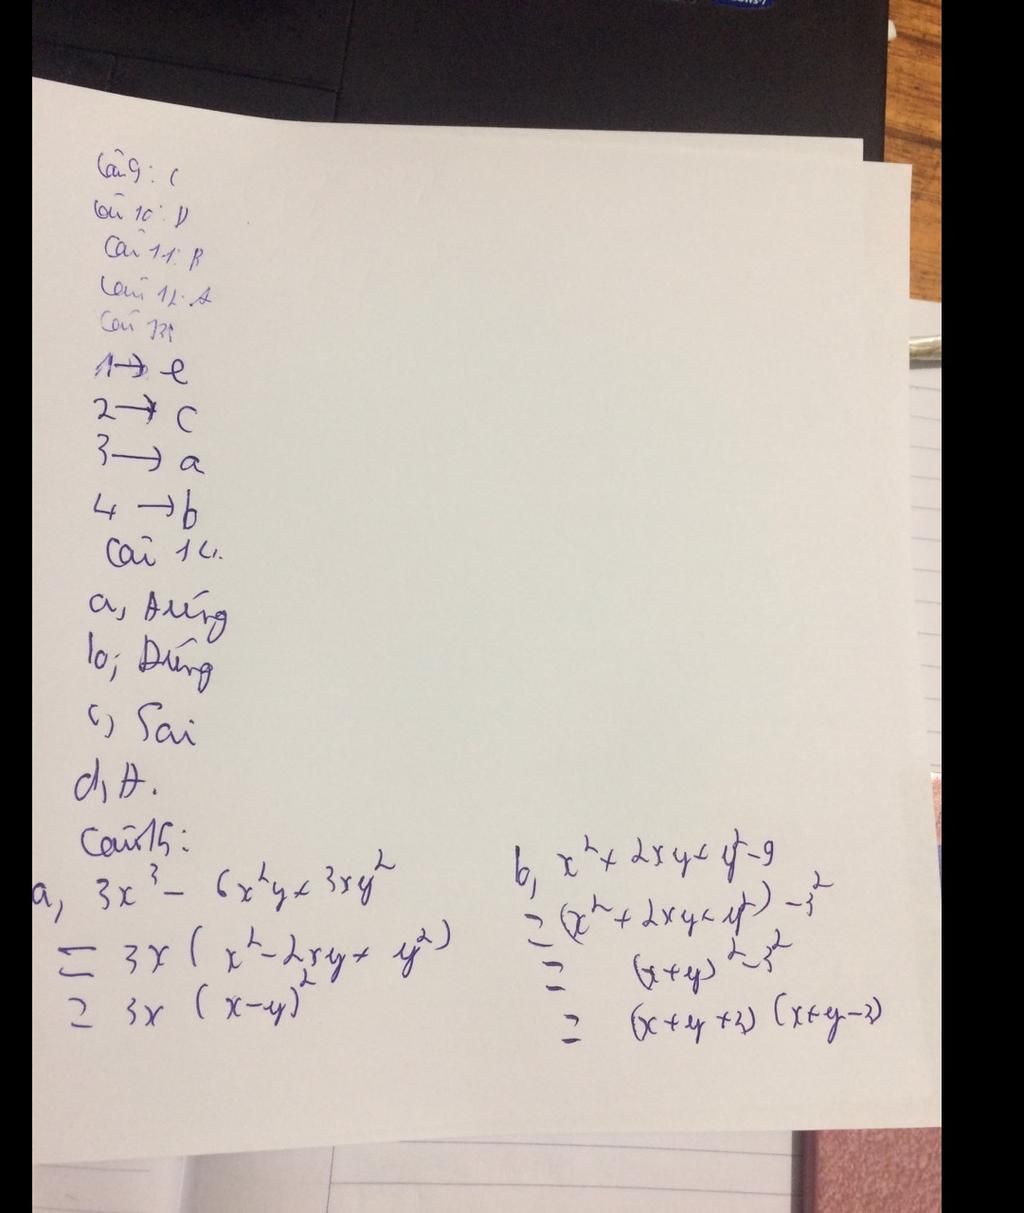 Câu 9: C
Câu 10: D
Câu 11: B
Câu 12: A
Câu 13:
1 → e
2 → c
3 → a
4 → b
Câu 14.
a, Đúng
b, Đúng
c, Sai
d, Đ.
Câu 15:
a, 3x³ - 6x²y + 3xy²
= 3x ( x² - 2xy + y² )
= 3x ( x - y )²
b, x² + 2xy + y² - 9
= (x² + 2xy + y²) - 3²
= (x+y)² - 3²
= (x+y+3) (x+y-3)